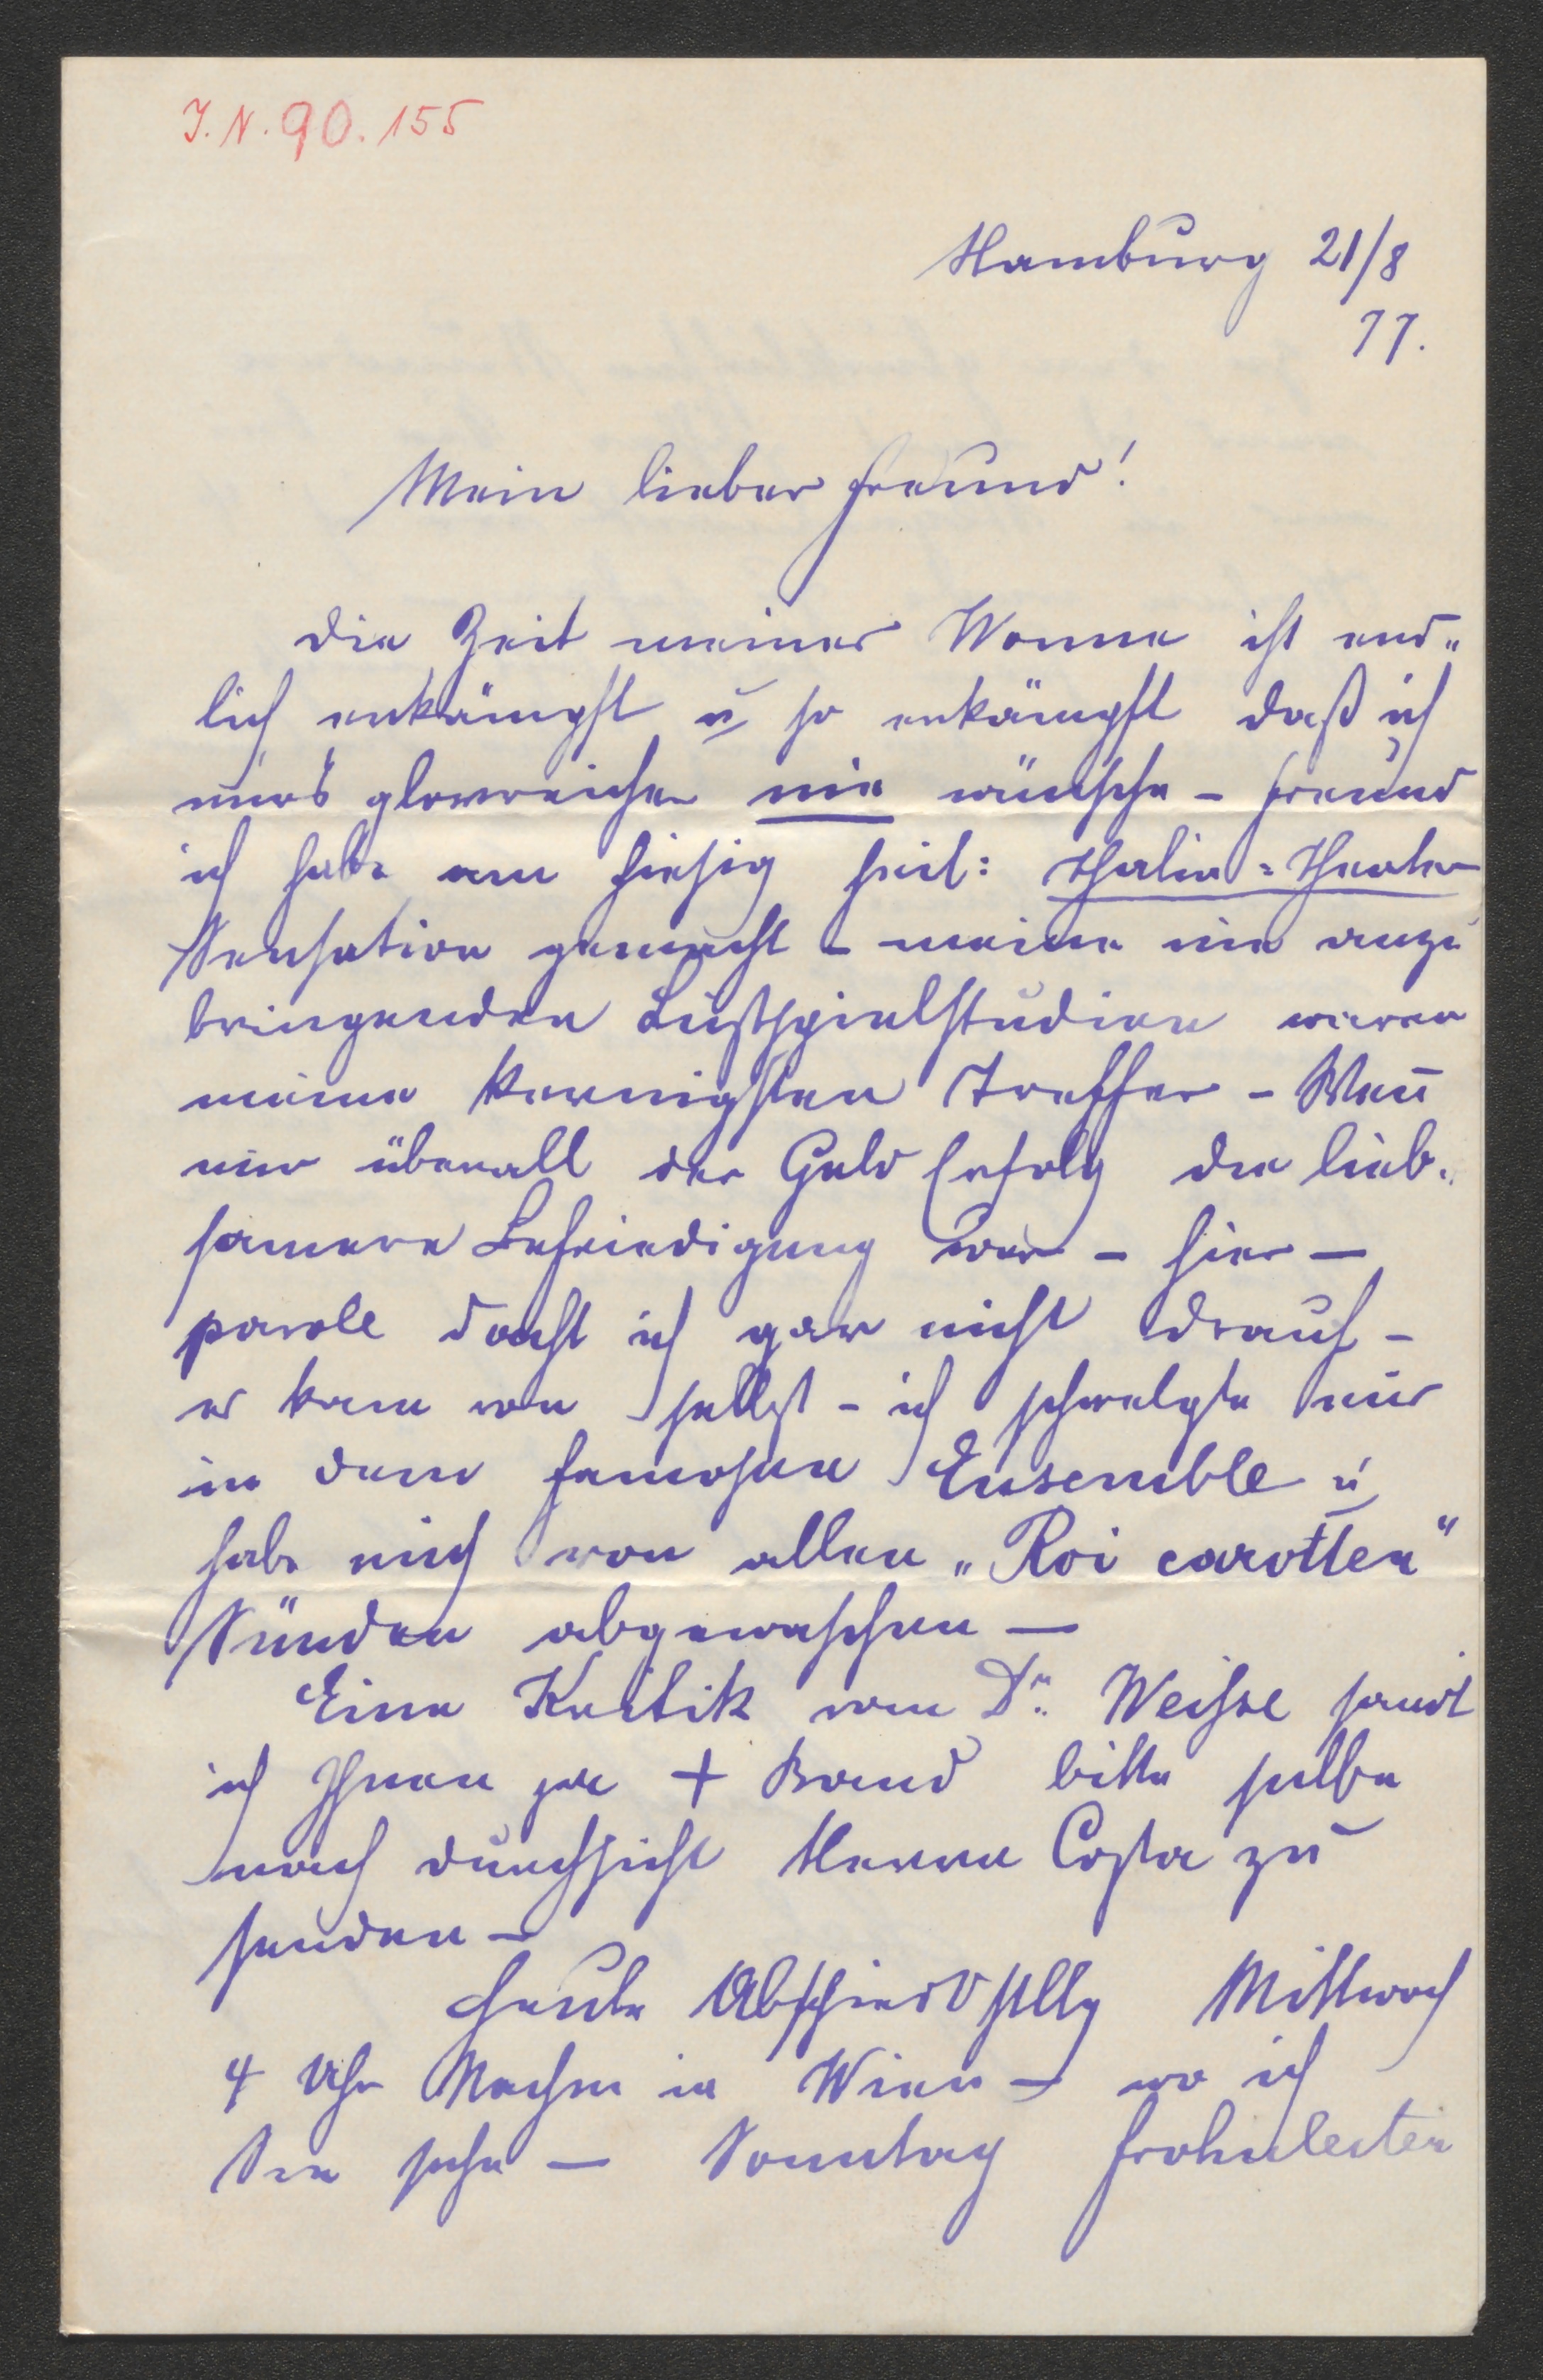 J.N. 90.155
Hamburg 21/8
77.
Mein lieber Freund!
Die Zeit meiner Wonne ist end„
lich erkämpft u so erkämpft daß ich
mirs glorreicher nie wünsche – Freund
ich habe am hiesig heil: Thalia=Theater
Sensation gemacht – meine nie anzu
bringenden Lustspielstudien waren
meine kernigsten Treffer – Wen̄
mir überall der Geld Erfolg die lieb„
samere Befriedigung war – hier –
parole dacht ich gar nicht drauf –
er kam von selbst – ich schwelgte nur
in dem famosen Ensemble u
habe mich von allen „Roi carotten“
Sünden abgewaschen –
Eine Kritik vom Dr. Weisse sandt
ich Ihnen per + Band bitte selbe
nach durchsicht Herrn Costa zu
senden –
Heute Abschieds Mittwoch
4 Uhr Nachm in Wien – wo ich
Sie sehe – Sonntag Frohnleiten